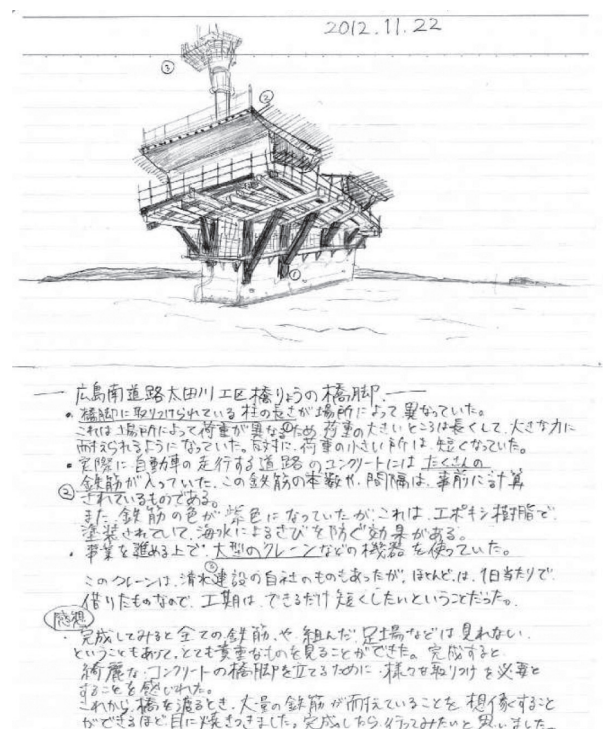 2012.11.22
③
②
①
広島南道路太田川工区橋りょうの橋脚
・橋脚に取りつけられている柱の長さが場所によって異なっていた。
これは場所によって荷重が異なるため荷重の大きいところは長くして、大きな力に
①
耐えられるようになっていた。反対に、荷重の小さい所は短くなっていた。
・実際に自動車の走行する道路のコンクリートにはたくさんの
鉄筋が入っていた。この鉄筋の本数や、間隔は、事前に計算
② されているものである。
また鉄筋の色が紫色になっていたが、これは、エポキシ樹脂で、
塗装されていて、海水によるさびを防ぐ効果がある。
・事業を進める上で大型のクレーンなどの機器を使っていた。
③
このクレーンは、清水建設の自社のものもあったが、ほとんどは、1日当たりで、
借りたものなので、工期は、できるだけ短くしたいということだった。
感想
・完成してみると全ての鉄筋、や、組んだ足場などは見れない
ということもあって、とても貴重なものを見ることができた。完成すると
綺麗なコンクリートの橋脚を立てるために様々な取りつけを必要と
することを感じれた。
これから、橋を渡るとき、大量の鉄筋が耐えていることを想像すること
ができるほど目に焼きつきました。完成したら、行ってみたいと思いました。